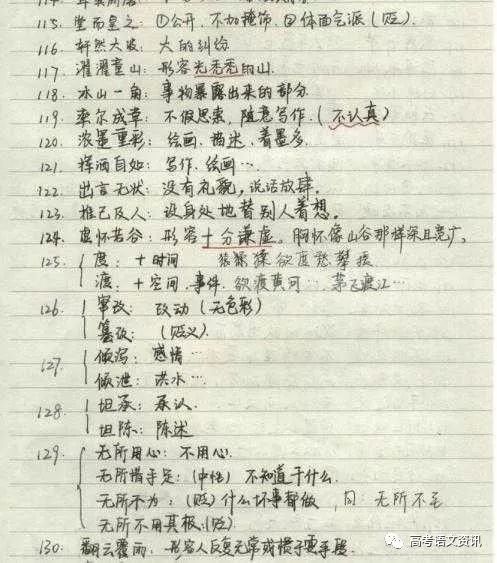 115. 堂而皇之: ①公开, 不加掩饰, ②体面气派 (贬).
116. 轩然大波: 大的纠纷
117. 濯濯童山: 形容光秃秃的山.
118. 冰山一角: 事物暴露出来的部分
119. 率尔成章: 不假思索, 随意写作. (不认真)
120. 浓墨重彩: 绘画, 描述, 着墨多.
121. 挥洒自如: 写作. 绘画…
122. 出言无状: 没有礼貌, 说话放肆.
123. 推己及人: 设身处地替别人着想.
124. 虚怀若谷: 形容十分谦虚. 胸怀像山谷那样深且宽广.
125. 度: +时间 猿猱欲度愁攀援
渡: +空间, 事件. 欲渡黄河…
126. 窜改: 改动 (无色彩)
篡改: (贬义).
127. 倾泻: 感情…
倾泄: 洪水…
128. 坦承: 承认.
坦陈: 陈述
129. 无所用心: 不用心.
无所措手足: (中性) 不知道干什么.
无所不为: (贬) 什么坏事都做, 同: 无所不至
无所不用其极. (贬)
130. 翻云覆雨: 形容人反复无常或惯于耍手段.
高考语文资讯